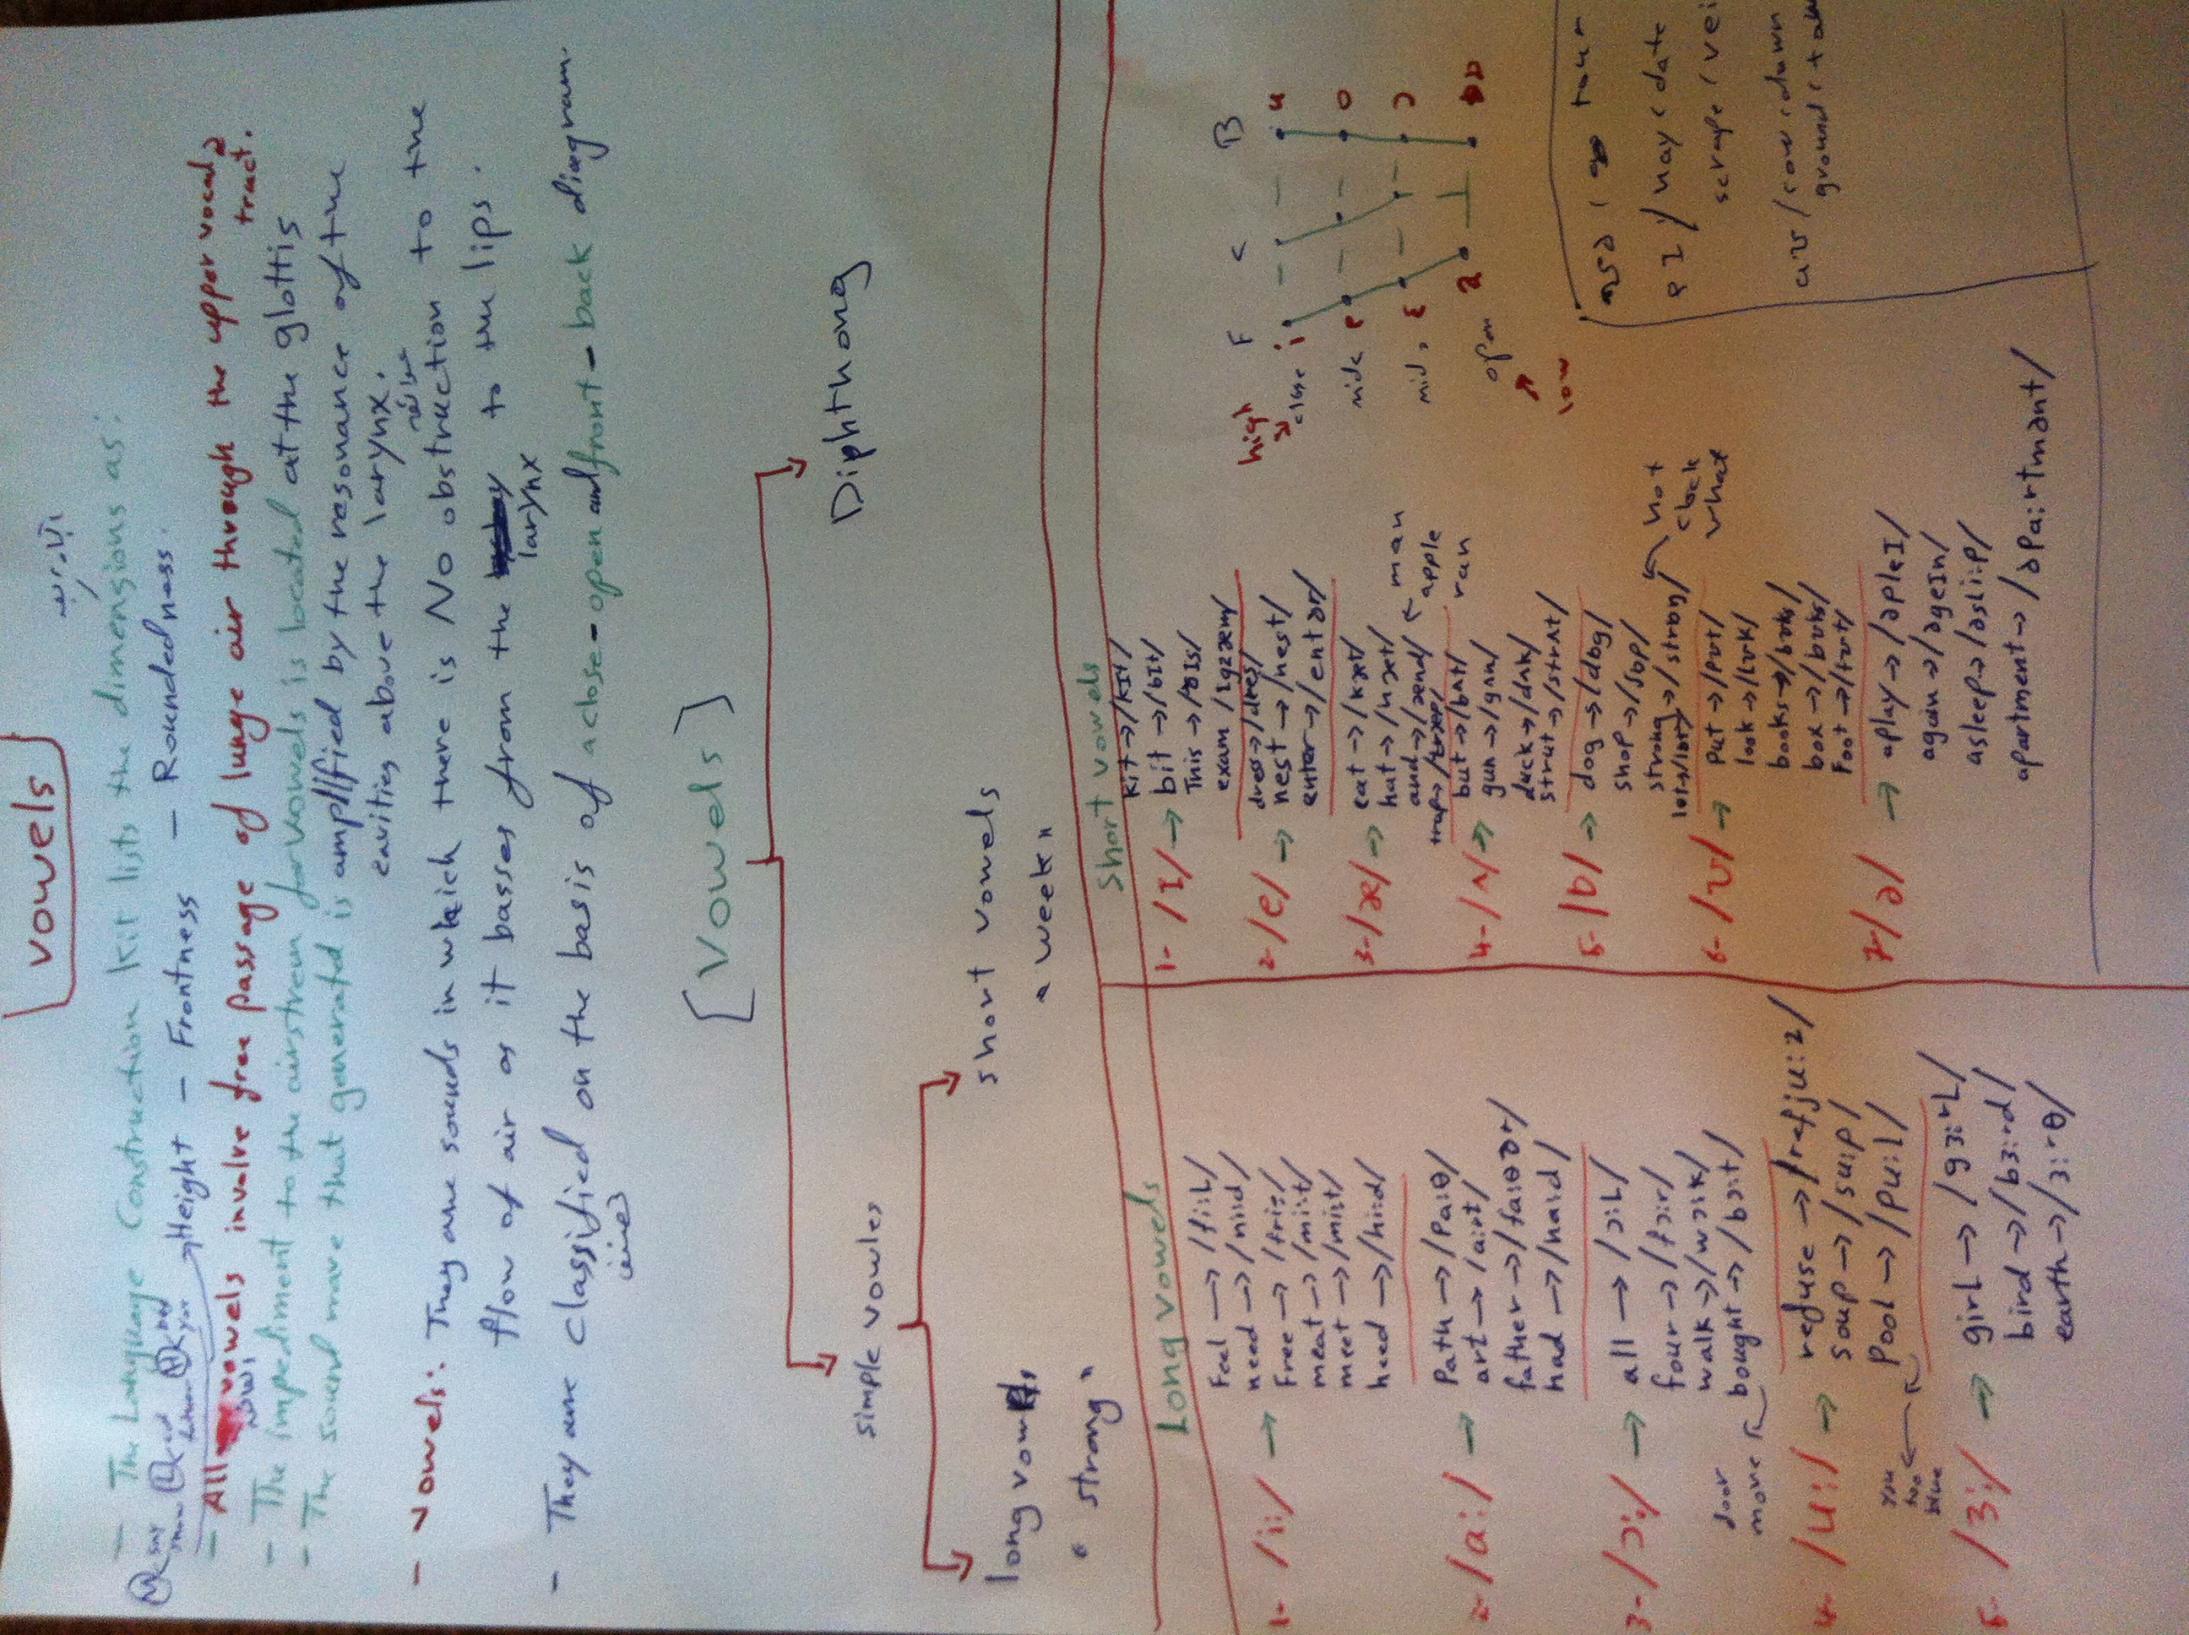 vowels
- The Language Construction kit lists the dimensions as:
Height - Frontness - Roundedness.
- All vowels involve free passage of lunge air through the upper vocal
tract.
- The impediment to the airstream for vowels is located at the glottis
- The sound mave that generated is amplified by the resonance of the
cavities above the larynx.
- Vowels: They are sounds in which there is No obstruction to the
flow of air as it basses from the larynx to the lips.
- They are Classified on the basis of a close-open and front-back diagram.
[Vowels]
simple vowles
Diphthong
long vowels
short vowels
" strong "
" week "
Long vowels
1- /i:/ →
Feel → /fi:L/
need → /ni:d/
Free → /fri:/
meat → /mi:t/
meet → /mi:t/
heed → /hi:d/
2- /a:/ →
Path → /Pa:θ/
art → /a:rt/
father → /fa:θər/
had → /ha:d/
3- /ɔ:/ →
all → /ɔ:L/
four → /fɔ:r/
walk → /wɔ:k/
bought → /bɔ:t/
door
move
4- /u:/ →
refuse → /refju:z/
soup → /su:p/
Pool → /Pu:l/
you
two
blue
5- /ɜ:/ →
girl → /gɜ:rL/
bird → /bɜ:rd/
earth → /ɜ:rθ/
Short vowels
1- /I/ →
Kit → /KIt/
bit → /bIt/
This → /ðIs/
exam /Igzæm/
2- /e/ →
dress → /dres/
nest → /nest/
enter → /entər/
3- /æ/ →
cat → /kæt/
hat → /hæt/
and → /ænd/
trap → /træp/
man
apple
ran
4- /ʌ/ →
but → /bʌt/
gun → /gʌn/
duck → /dʌk/
strut → /strʌt/
5- /ɒ/ →
dog → /dɒg/
shop → /ʃɒp/
strong → /strɒŋ/
hot
clock
what
6- /ʊ/ →
put → /pʊt/
look → /lʊk/
books → /bʊks/
box → /bʊks/
Foot → /fʊt/
7- /ə/ →
aplay → /əpleI/
again → /əgeIn/
asleep → /əsli:p/
apartment → /əPa:rtmənt/
F C B
high
close i u
mid e o
mid, ɛ ɔ
open a
low
tour
eI / may / date
scrape / vei
aʊ / cow / down
ground /